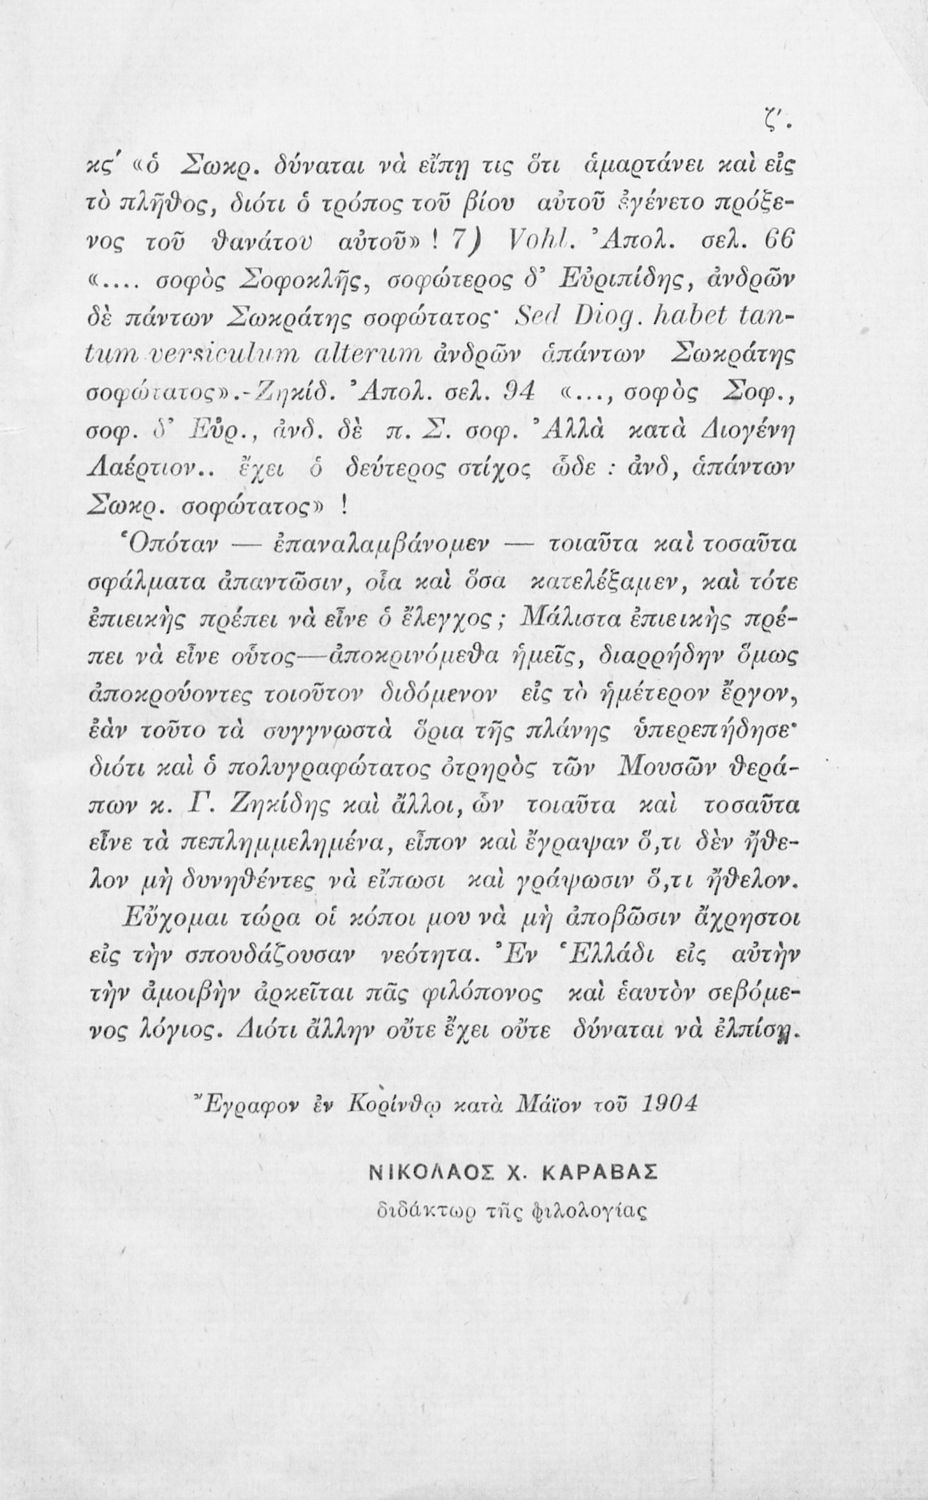 ζ'.
κς' «ὁ Σωκρ. δύναται νὰ εἴπῃ τις ὅτι ἁμαρτάνει καὶ εἰς
τὸ πλῆθος, διότι ὁ τρόπος τοῦ βίου αὐτοῦ ἐγένετο πρόξε-
νος τοῦ θανάτου αὐτοῦ» ! 7) Vohl. Ἀπολ. σελ. 66
«.... σοφὸς Σοφοκλῆς, σοφώτερος δ' Εὐριπίδης, ἀνδρῶν
δὲ πάντων Σωκράτης σοφώτατος· Sed Diog. habet tan-
tum versiculum alterum ἀνδρῶν ἁπάντων Σωκράτης
σοφώτατος».-Ζηκίδ. Ἀπολ. σελ. 94 «..., σοφὸς Σοφ.,
σοφ. δ' Εὐρ., ἀνδ. δὲ π. Σ. σοφ. Ἀλλὰ κατὰ Διογένη
Λαέρτιον.. ἔχει ὁ δεύτερος στίχος ὧδε : ἀνδ, ἁπάντων
Σωκρ. σοφώτατος» !
Ὁπόταν — ἐπαναλαμβάνομεν — τοιαῦτα καὶ τοσαῦτα
σφάλματα ἀπαντῶσιν, οἷα καὶ ὅσα κατελέξαμεν, καὶ τότε
ἐπιεικὴς πρέπει νὰ εἶνε ὁ ἔλεγχος ; Μάλιστα ἐπιεικὴς πρέ-
πει νὰ εἶνε οὗτος—ἀποκρινόμεθα ἡμεῖς, διαρρήδην ὅμως
ἀποκρούοντες τοιοῦτον διδόμενον εἰς τὸ ἡμέτερον ἔργον,
ἐὰν τοῦτο τὰ συγγνωστὰ ὅρια τῆς πλάνης ὑπερεπήδησε·
διότι καὶ ὁ πολυγραφώτατος ὀτρηρὸς τῶν Μουσῶν θερά-
πων κ. Γ. Ζηκίδης καὶ ἄλλοι, ὧν τοιαῦτα καὶ τοσαῦτα
εἶνε τὰ πεπλημμελημένα, εἶπον καὶ ἔγραψαν ὅ,τι δὲν ἤθε-
λον μὴ δυνηθέντες νὰ εἴπωσι καὶ γράψωσιν ὅ,τι ἤθελον.
Εὔχομαι τώρα οἱ κόποι μου νὰ μὴ ἀποβῶσιν ἄχρηστοι
εἰς τὴν σπουδάζουσαν νεότητα. Ἐν Ἑλλάδι εἰς αὐτὴν
τὴν ἀμοιβὴν ἀρκεῖται πᾶς φιλόπονος καὶ ἑαυτὸν σεβόμε-
νος λόγιος. Διότι ἄλλην οὔτε ἔχει οὔτε δύναται νὰ ἐλπίσῃ.
Ἔγραφον ἐν Κορίνθῳ κατὰ Μάϊον τοῦ 1904
ΝΙΚΟΛΑΟΣ Χ. ΚΑΡΑΒΑΣ
διδάκτωρ τῆς φιλολογίας